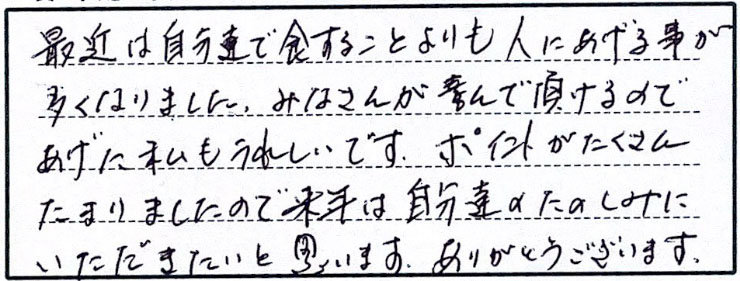 最近は自分達で食することよりも人にあげる事が
多くなりました。みなさんが喜んで頂けるので
あげた私もうれしいです。ポイントがたくさん
たまりましたので来年は自分達のたのしみに
いただきたいと思います。ありがとうございます。